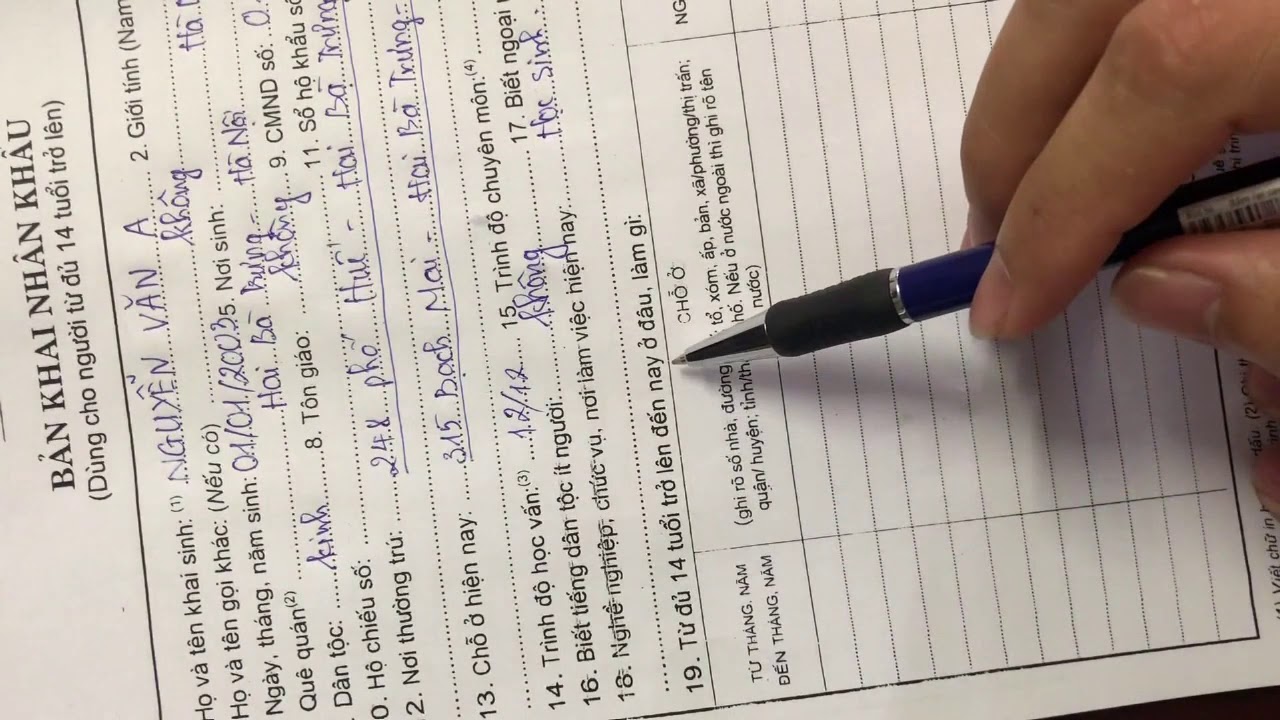 BẢN KHAI NHÂN KHẨU
(Dùng cho người từ đủ 14 tuổi trở lên)
Họ và tên khai sinh: (1) NGUYỄN VĂN A 2. Giới tính (Nam
Họ và tên gọi khác: (Nếu có) không
Ngày, tháng, năm sinh: 01/01/2003 5. Nơi sinh: Hà Nội
Quê quán(2) Hai Bà Trưng - Hà Nội
Dân tộc: kinh 8. Tôn giáo: không 9. CMND số:
0. Hộ chiếu số: 11. Sổ hộ khẩu số
2. Nơi thường trú: 248 phố Huế - Hai Bà Trưng
13. Chỗ ở hiện nay: 315 Bạch Mai - Hai Bà Trưng -
14. Trình độ học vấn:(3) 12/12 15. Trình độ chuyên môn:(4)
16. Biết tiếng dân tộc ít người không 17. Biết ngoại
18. Nghề nghiệp, chức vụ, nơi làm việc hiện nay: Học sinh
19. Từ đủ 14 tuổi trở lên đến nay ở đâu, làm gì:
TỪ THÁNG, NĂM
ĐẾN THÁNG, NĂM
CHỖ Ở
(ghi rõ số nhà, đường tổ, xóm, ấp, bản, xã/phường/thị trấn;
quận/ huyện; tỉnh/th hố. Nếu ở nước ngoài thì ghi rõ tên
nước)
NG
(1) Viết chữ in